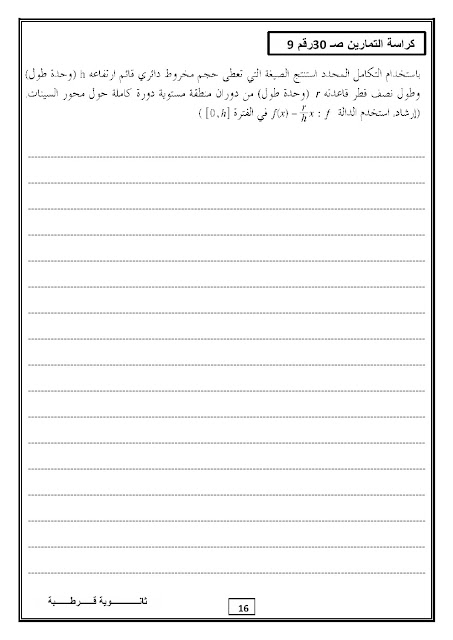 كراسة التمارين صـ 30رقم 9
باستخدام التكامل المحدد استنتج الصيغة التي تعطي حجم مخروط دائري قائم ارتفاعه h (وحدة طول)
وطول نصف قطر قاعدته r (وحدة طول) من دوران منطقة مستوية دورة كاملة حول محور السينات.
(إرشاد: استخدم الدالة f : f(x) = \frac{r}{h} x في الفترة [0 , h] )
ثانـــــوية قـــرطـــبة
16